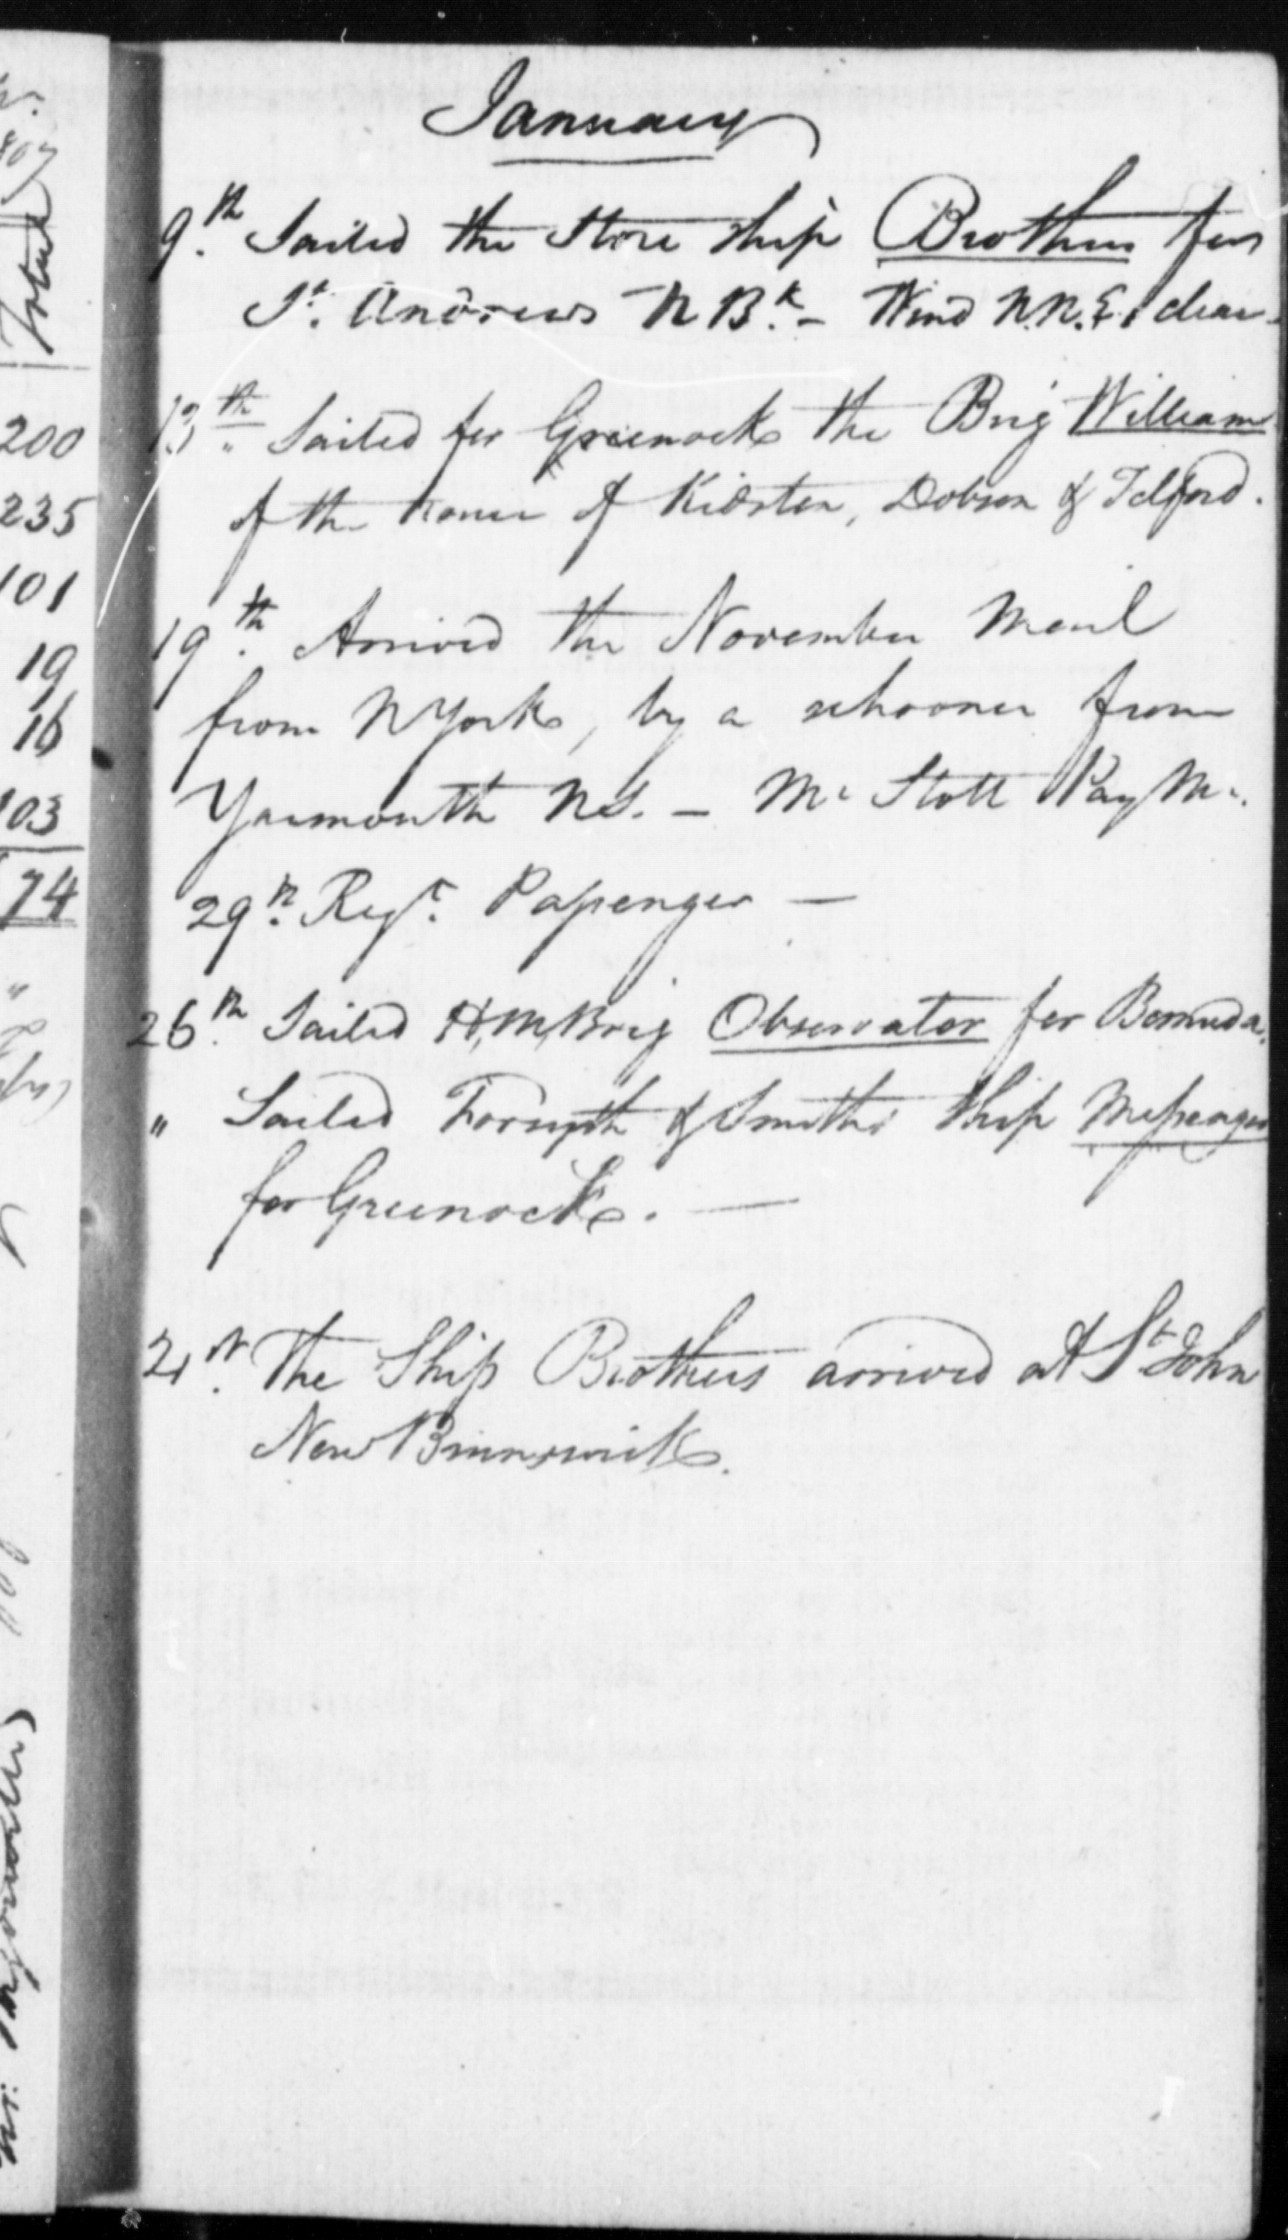 Total
200
235
101
19
16
103
74
January
9.th Sailed the Store Ship Brothers for
St. Andrews N Bk. - Wind N.N.E. clear -
13th Sailed for Greenock the Brig William
of the House of Kidston, Dobson & Telford.
19th. Arrived the November Mail
from NYork, by a schooner from
Yarmouth NS. - Mr Stott Pay Mr.
29th. Regt. Passenger —
26th. Sailed H,M,Brig Observator for Bermuda.
" Sailed Forsyth & Smiths Ship Messenger
for Greenock. —
21st. The Ship Brothers arrived at St John
New Brunswick.